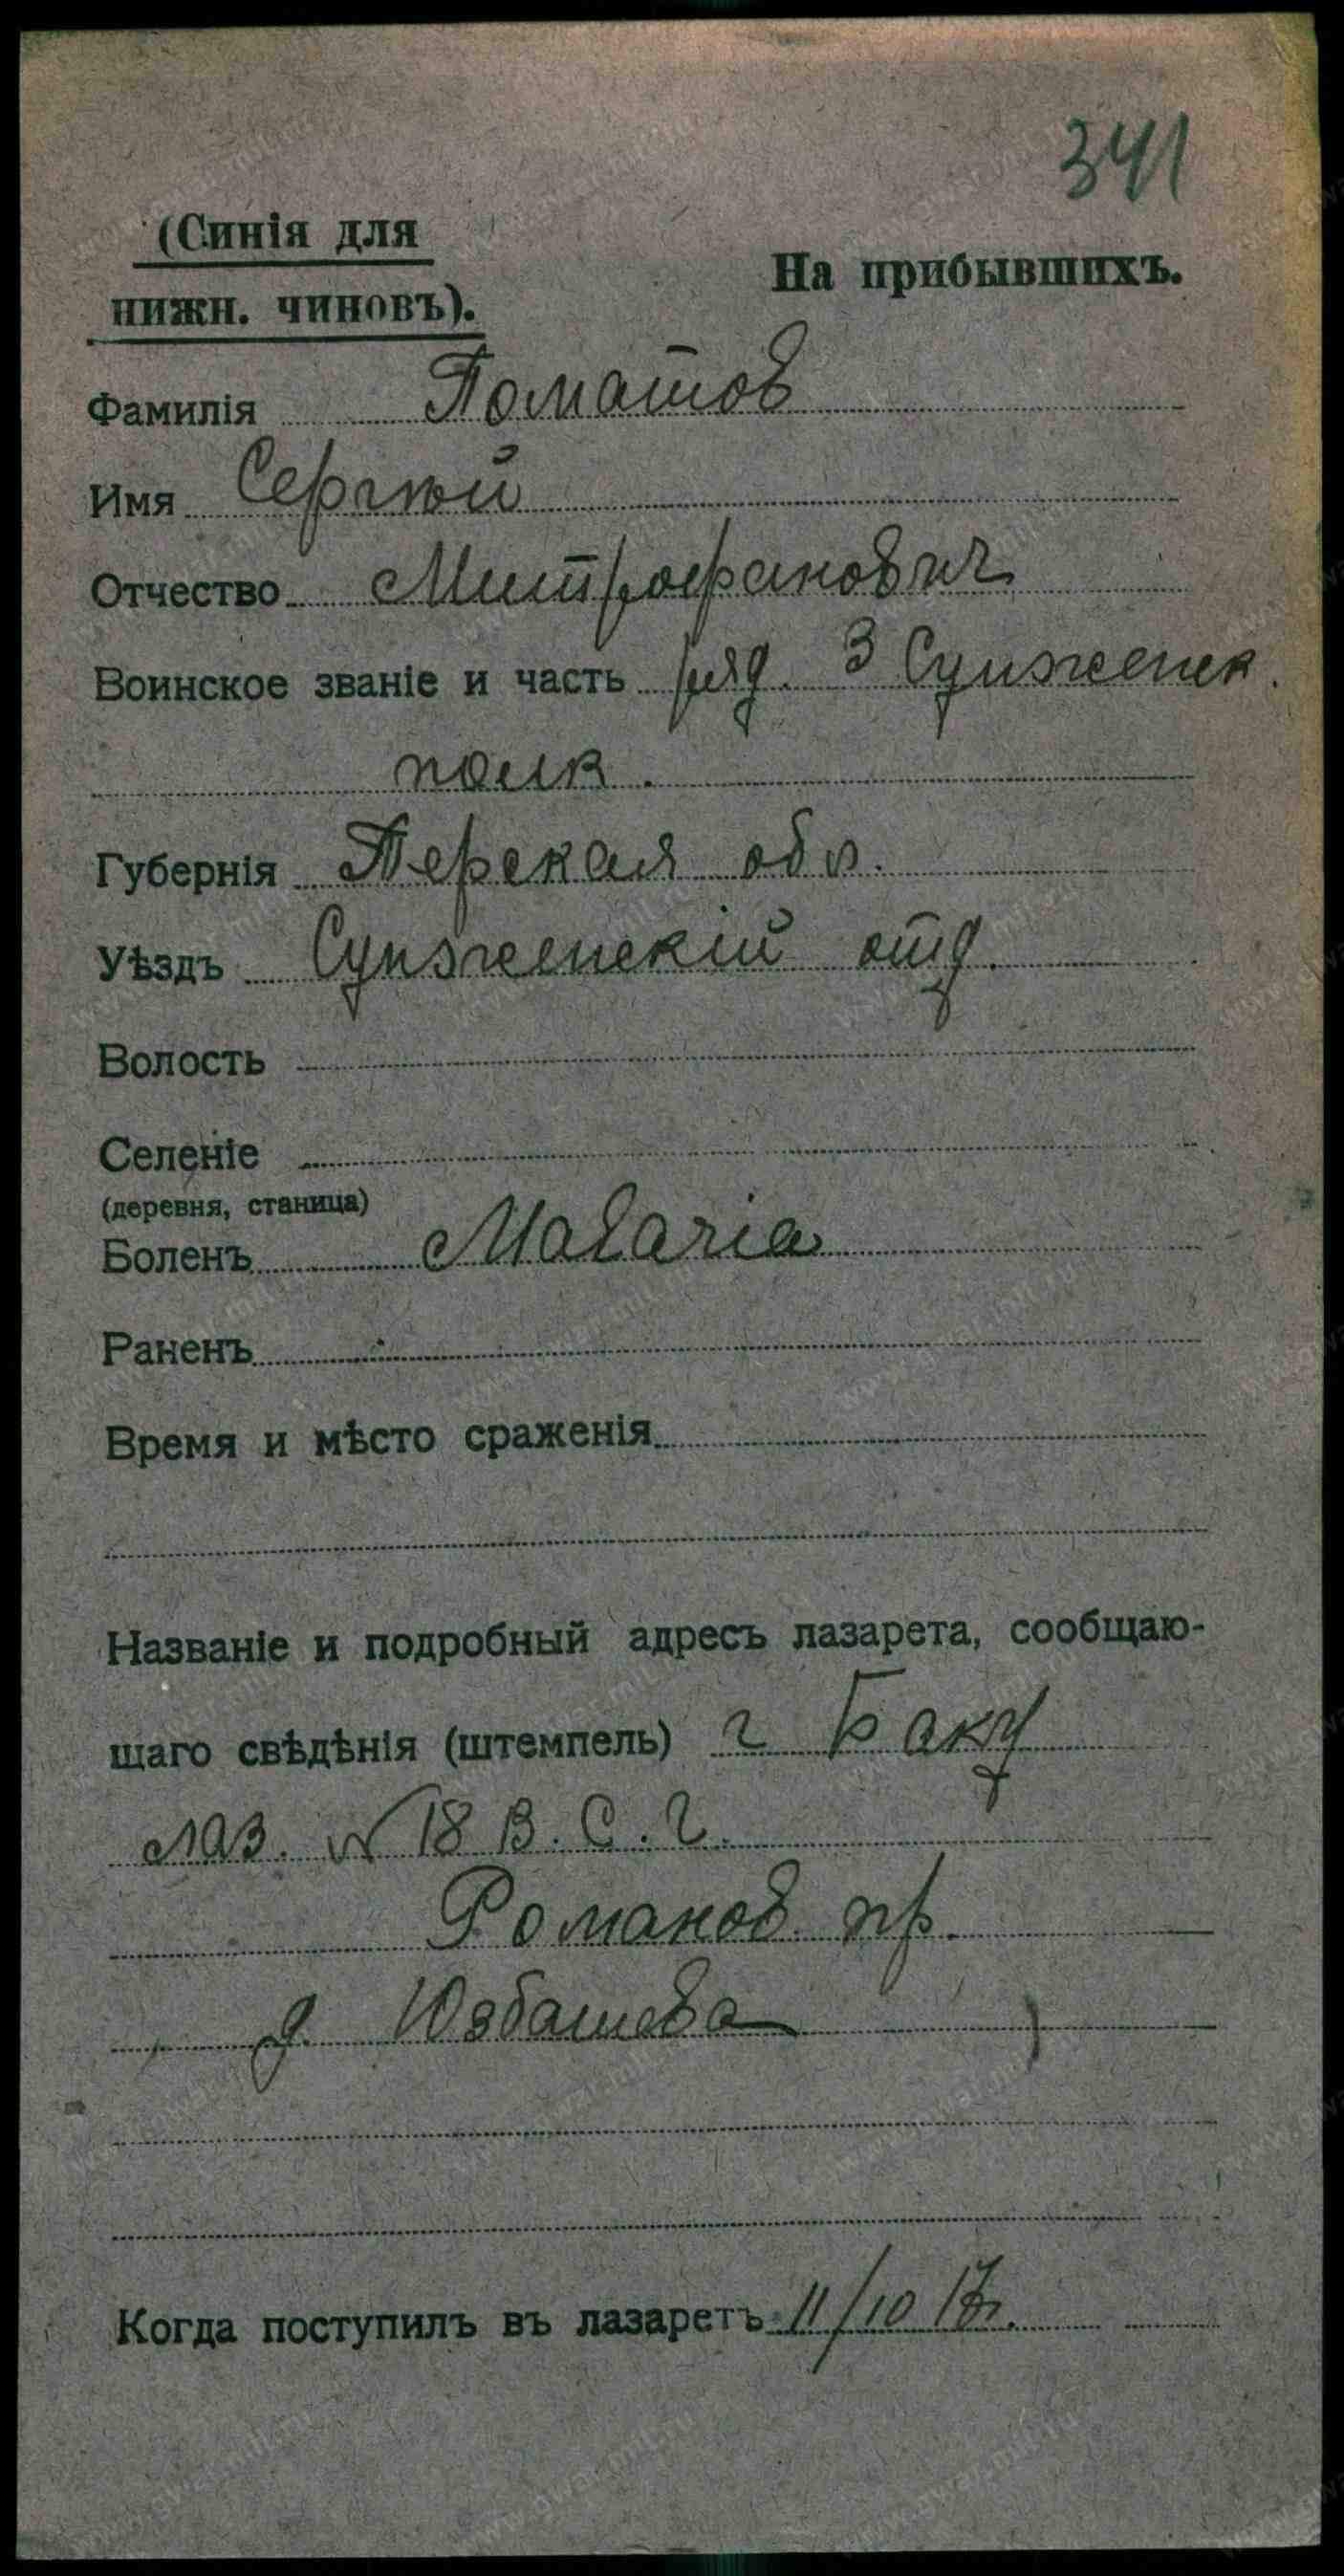 341
(Синія для
нижн. чиновъ).
На прибывшихъ.
Фамилія Поматов
Имя Сергѣй
Отчество Митрофанович
Воинское званіе и часть ряд. 3 Сунженск.
полк.
Губернія Терская обл.
Уѣздъ Сунженскій отд.
Волость
Селеніе
(деревня, станица)
Боленъ Malaria
Раненъ
Время и мѣсто сраженія
Названіе и подробный адресъ лазарета, сообщаю-
щаго свѣдѣнія (штемпель) г Баку
лаз. № 18 В. С. Г.
Романов. пр.
д. Юзбашева
Когда поступилъ въ лазаретъ 11/10 17г.